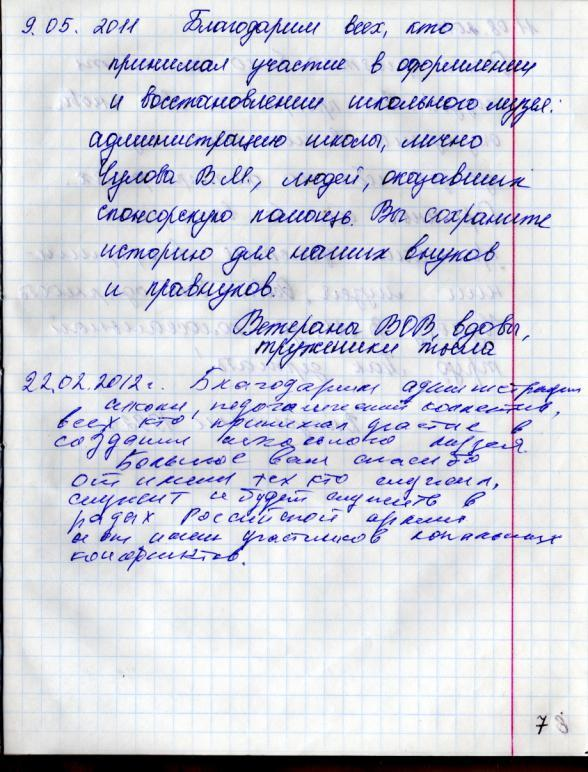 9.05.2011 Благодарим всех, кто
принимал участие в оформлении
и восстановлении школьного музея:
администрацию школы, лично
Чулова В.М., людей, оказавших
спонсорскую помощь. Вы сохраните
историю для наших внуков
и правнуков.
Ветераны ВОВ, вдовы,
труженики тыла
22.02.2012г. Благодарим администрацию
школы, педагогический коллектив,
всех кто принимал участие в
создании школьного музея
Большое вам спасибо
от имени тех кто служил,
служит и будет служить в
рядах Российской армии
и от имени участников локальных
конфликтов.
7